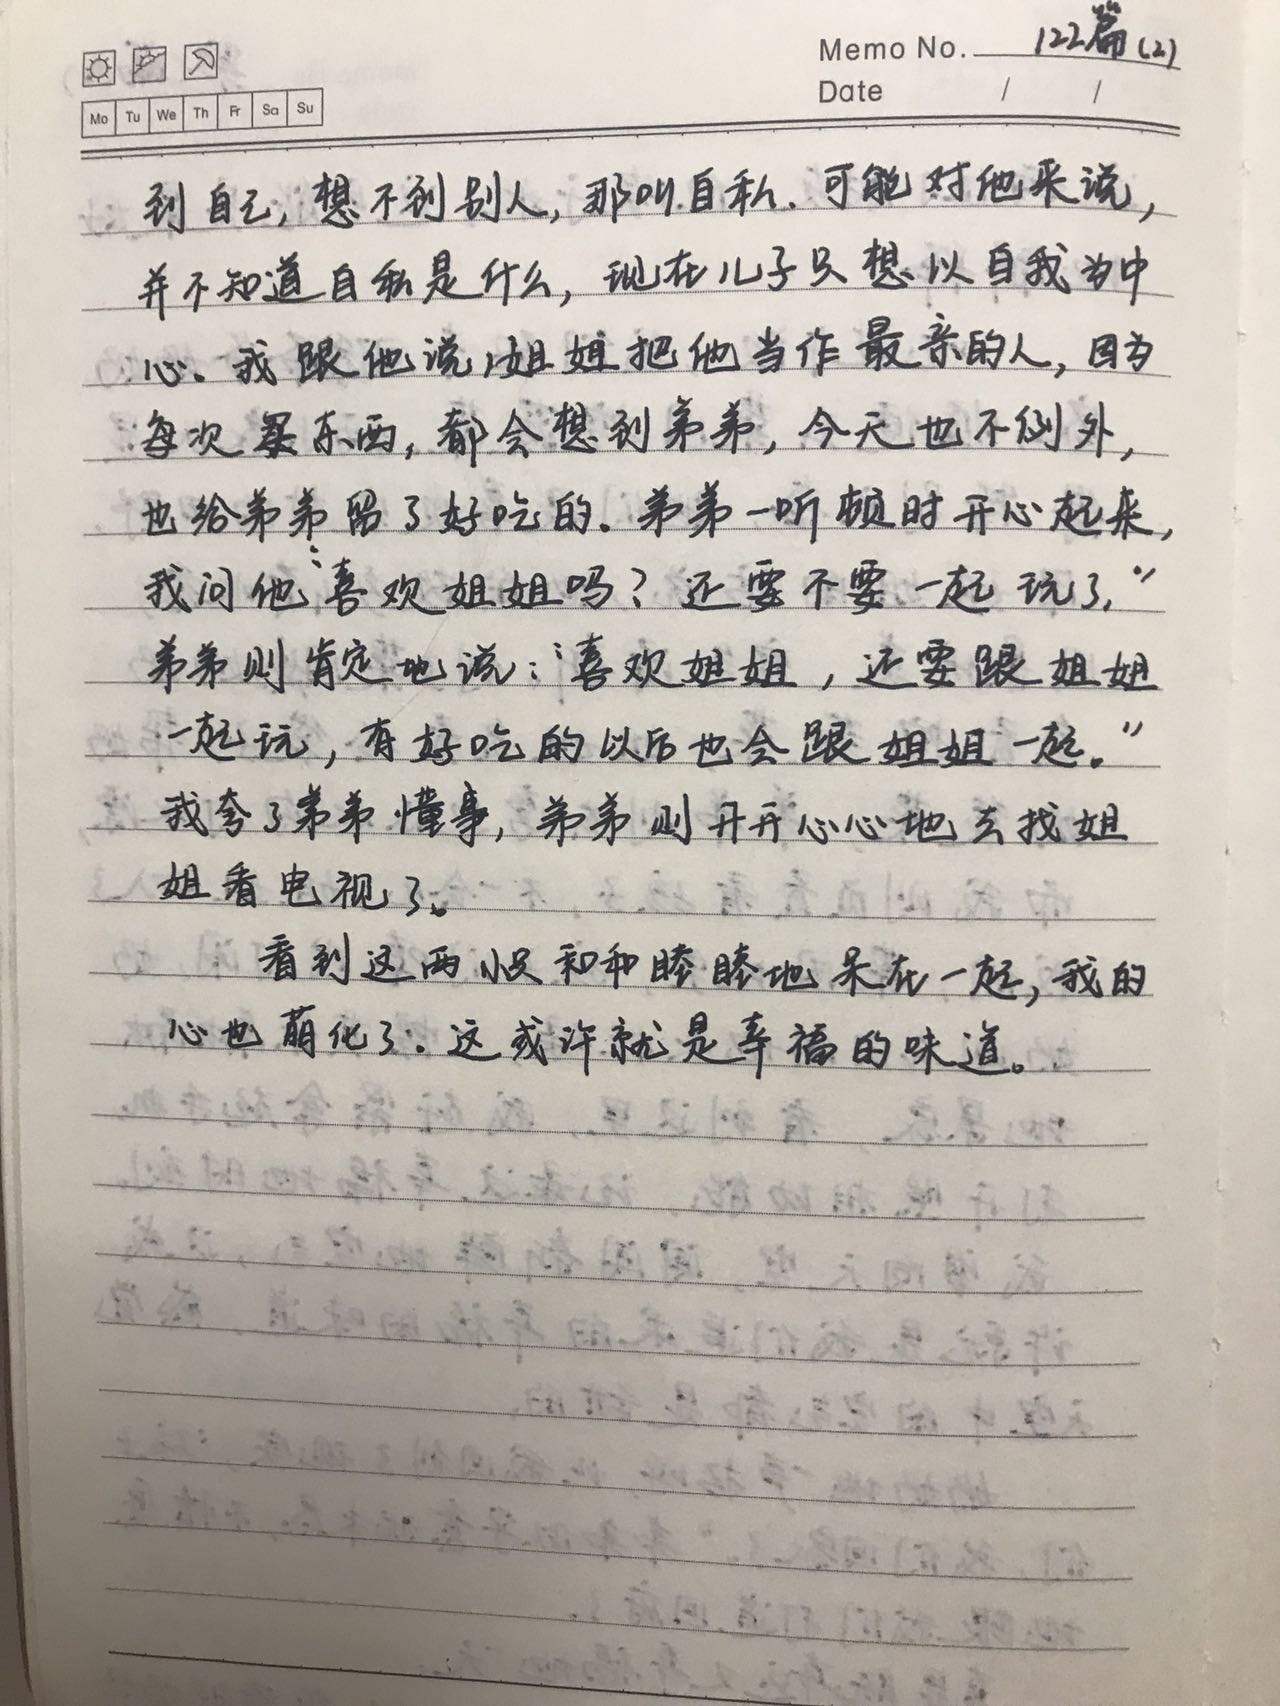 Memo No. 122篇(2)
Date / /
Mo Tu We Th Fr Sa Su
到自己,想不到别人,那叫自私.可能对他来说,
并不知道自私是什么,现在儿子只想以自我为中
心。我跟他说,姐姐把他当作最亲的人,因为
每次买东西,都会想到弟弟,今天也不例外,
也给弟弟留了好吃的.弟弟一听顿时开心起来,
我问他“喜欢姐姐吗?还要不要一起玩了.”
弟弟则肯定地说:“喜欢姐姐,还要跟姐姐
一起玩,有好吃的以后也会跟姐姐一起。”
我夸了弟弟懂事,弟弟则开开心心地去找姐
姐看电视了。
看到这两小只和和睦睦地呆在一起,我的
心也萌化了.这或许就是幸福的味道。